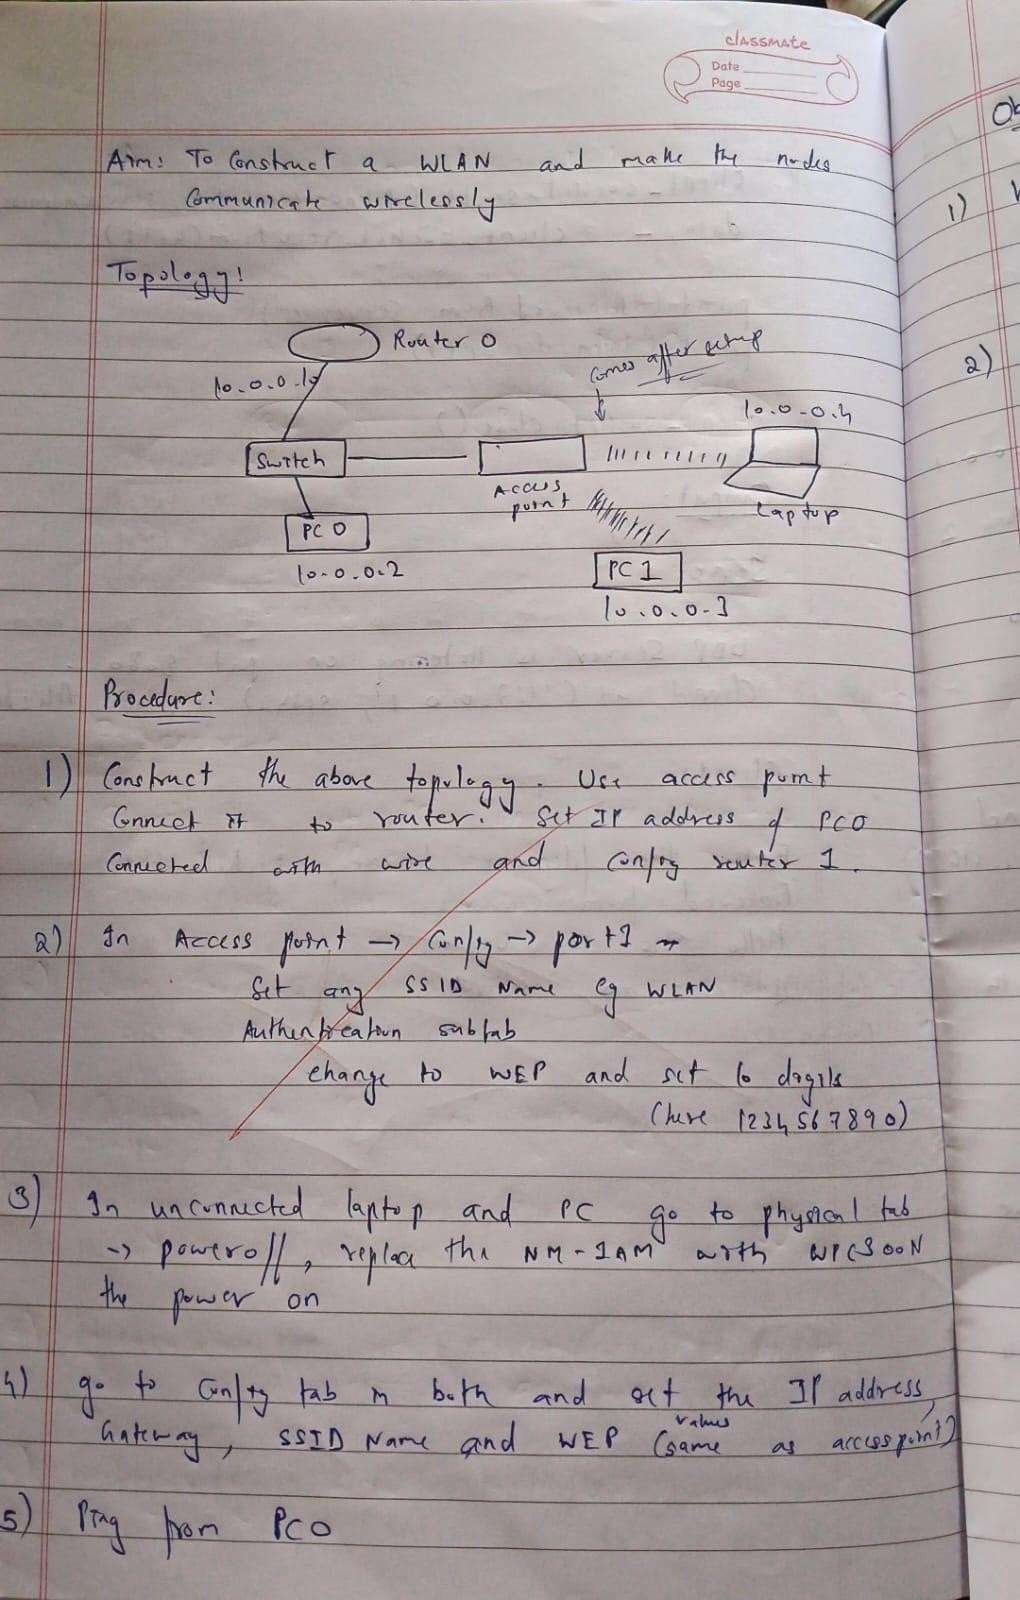 classmate
Date
Page
Aim: To Construct a WLAN and make the nodes
Communicate wirelessly
Topology:
Router 0
10.0.0.10
comes after setup
10.0.0.4
Switch
Access
point
Laptop
PC 0
10.0.0.2
PC 1
10.0.0.3
Procedure:
1) Construct the above topology. Use access point
Connect it to router. Set IP address of PC0
Connected with wire and config router 1.
2) In Access point → Config → port 1 →
Set any SSID Name eg WLAN
Authentication subtab
change to WEP and set 10 digits
(here 1234567890)
3) In unconnected laptop and PC go to physical tab
→ poweroff, replace the NM-1AM with WPC300N
the power on
4) go to Config tab in both and set the IP address,
Gateway, SSID Name and WEP values (same as access point)
5) Ping from PC0
Ob
1)
2)